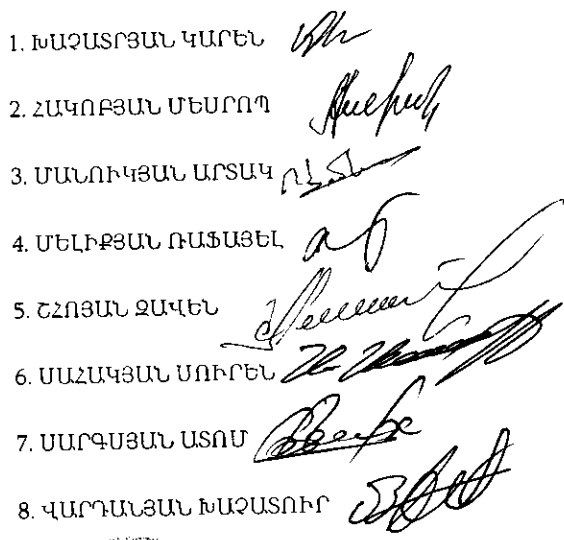 1. ԽԱՉԱՏՐՅԱՆ ԿԱՐԵՆ
2. ՀԱԿՈԲՅԱՆ ՄԵՍՐՈՊ
3. ՄԱՆՈՒԿՅԱՆ ԱՐՏԱԿ
4. ՄԵԼԻՔՅԱՆ ՌԱՖԱՅԵԼ
5. ՇՀՈՅԱՆ ԶԱՎԵՆ
6. ՍԱՀԱԿՅԱՆ ՍՈՒՐԵՆ
7. ՍԱՐԳՍՅԱՆ ԱՏՈՄ
8. ՎԱՐԴԱՆՅԱՆ ԽԱՉԱՏՈՒՐ